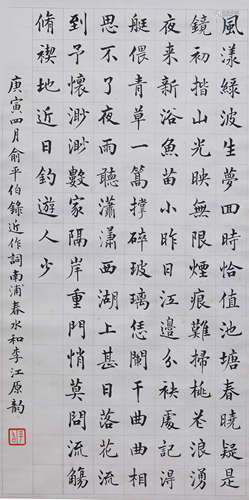 風漾綠波生夢回時恰值池塘春曉疑是
鏡初揩山光映無限煙痕難掃桃花浪湧
夜來新浴魚苗小昨日江邊分袂處記得
艇偎青草一篙撐碎玻璃恁闌干曲曲相
思不了雨聽瀟瀟西湖上甚日落花流
到予懷渺渺數家隔岸重門悄莫問流觴
脩禊地近日釣遊人少
庚寅四月俞平伯錄近作詞南浦春水和李江原韻